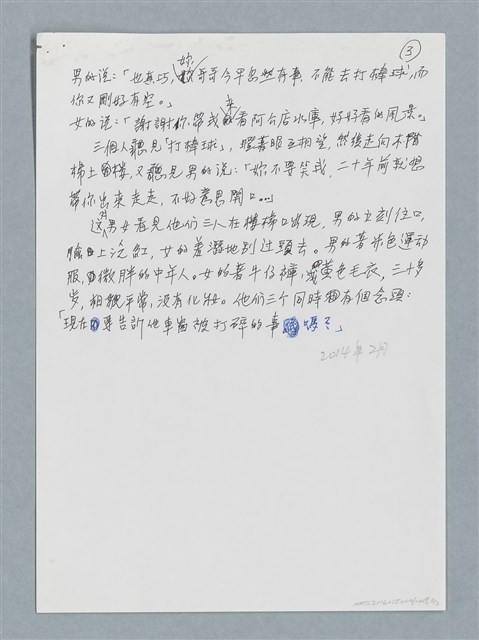 ③
男的説：「也真巧，妳哥哥今早忽然有事，不能去打棒球，而
你又剛好有空。」
女的説：「謝謝你帶我來看阿公店水庫，好好看的風景。」
三個人聽見「打棒球」，瞪著眼互相望，然後走向木階
梯上樓，又聽見男的説：「妳不要笑我，二十年前就想
帶你出來走走，不好意思開口。…」
這對男女看見他們三人在樓梯口出現，男的立刻住口，
臉上泛紅，女的羞澀地別過頭去。男的著米色運動
服，微胖的中年人。女的著牛仔褲，黃色毛衣，三十多
岁，相貌平常，没有化妆。他们三个同時有個念頭：
「現在要告訴他車窗被打碎的事嗎？」
2014年2月